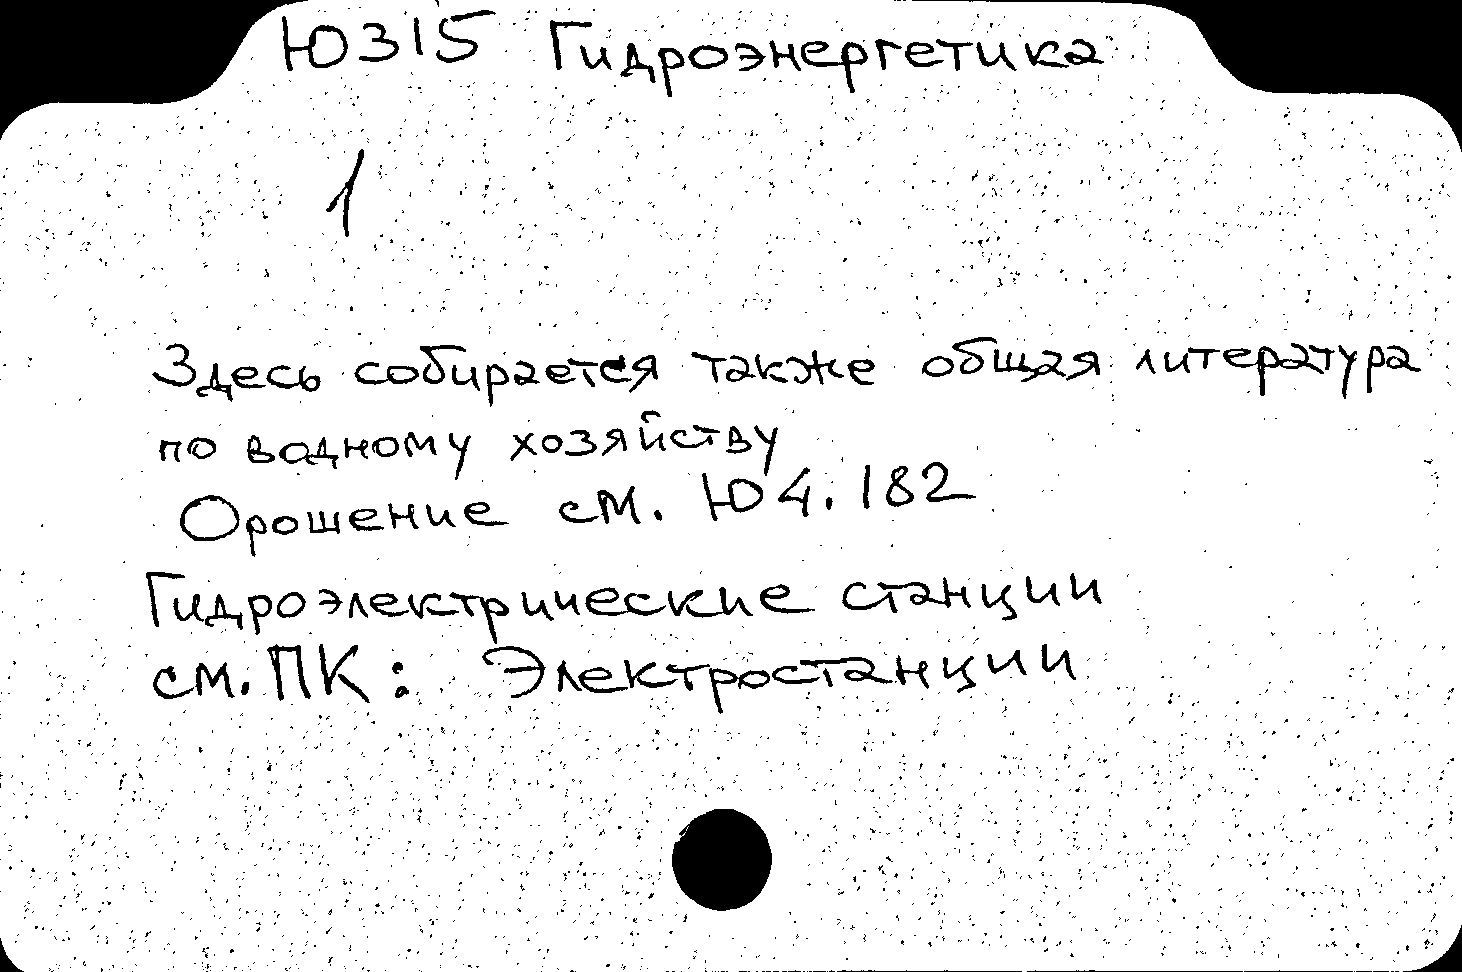 Ю315 Гидроэнергетика
1
Здесь собирается также общая литература
по водному хозяйству
Орошение см. Ю4.182
Гидроэлектрические станции
см. ПК: Электростанции